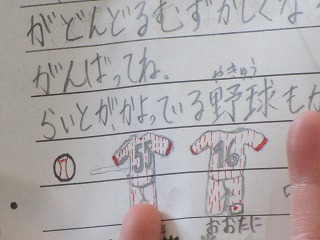 がどんどるむずかしくな
がんばってね。
やきゅう
らいとが、かよっている野球もが
55 16
おおたに